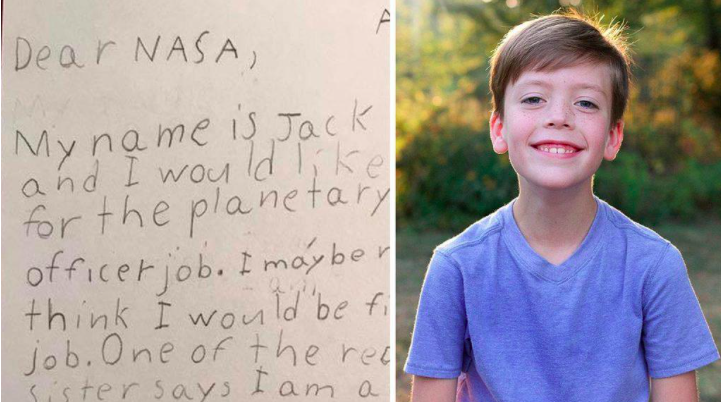 A
Dear NASA,
My name is Jack
and I would like
for the planetary
officer job. I maybe n
think I would be fi
job. One of the rea
sister says I am a